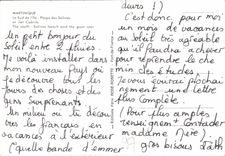 MARTINIQUE
Le Sud de l'île - Plage des Salines
The south - Salines beach and the giant cacti
Un petit bonjour du
Soleil entre 2 pluies.
Me voilà installée dans
mon nouveau Pays où
je découvre tous les
jours des choses et des
gens surprenants
Un milieu où tu découvres
les français en
vacances à l'extérieur
(quelle bande d'emmer
deurs !)
C'est donc pour moi
un mois de vacances
au soleil agréable
qu'il faudra achever
pour reprendre le che
min des études.
Je vous écrirai prochai
nement une lettre
plus complète.
(Pour plus amples
renseignemt contacter
madame Mère)
gros bisous